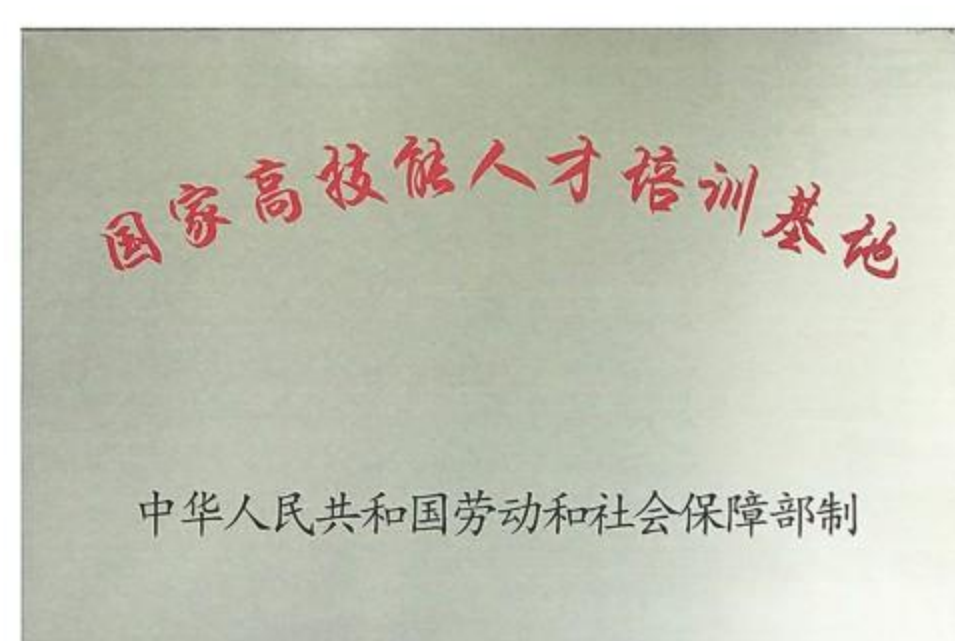 国家高技能人才培训基地
中华人民共和国劳动和社会保障部制